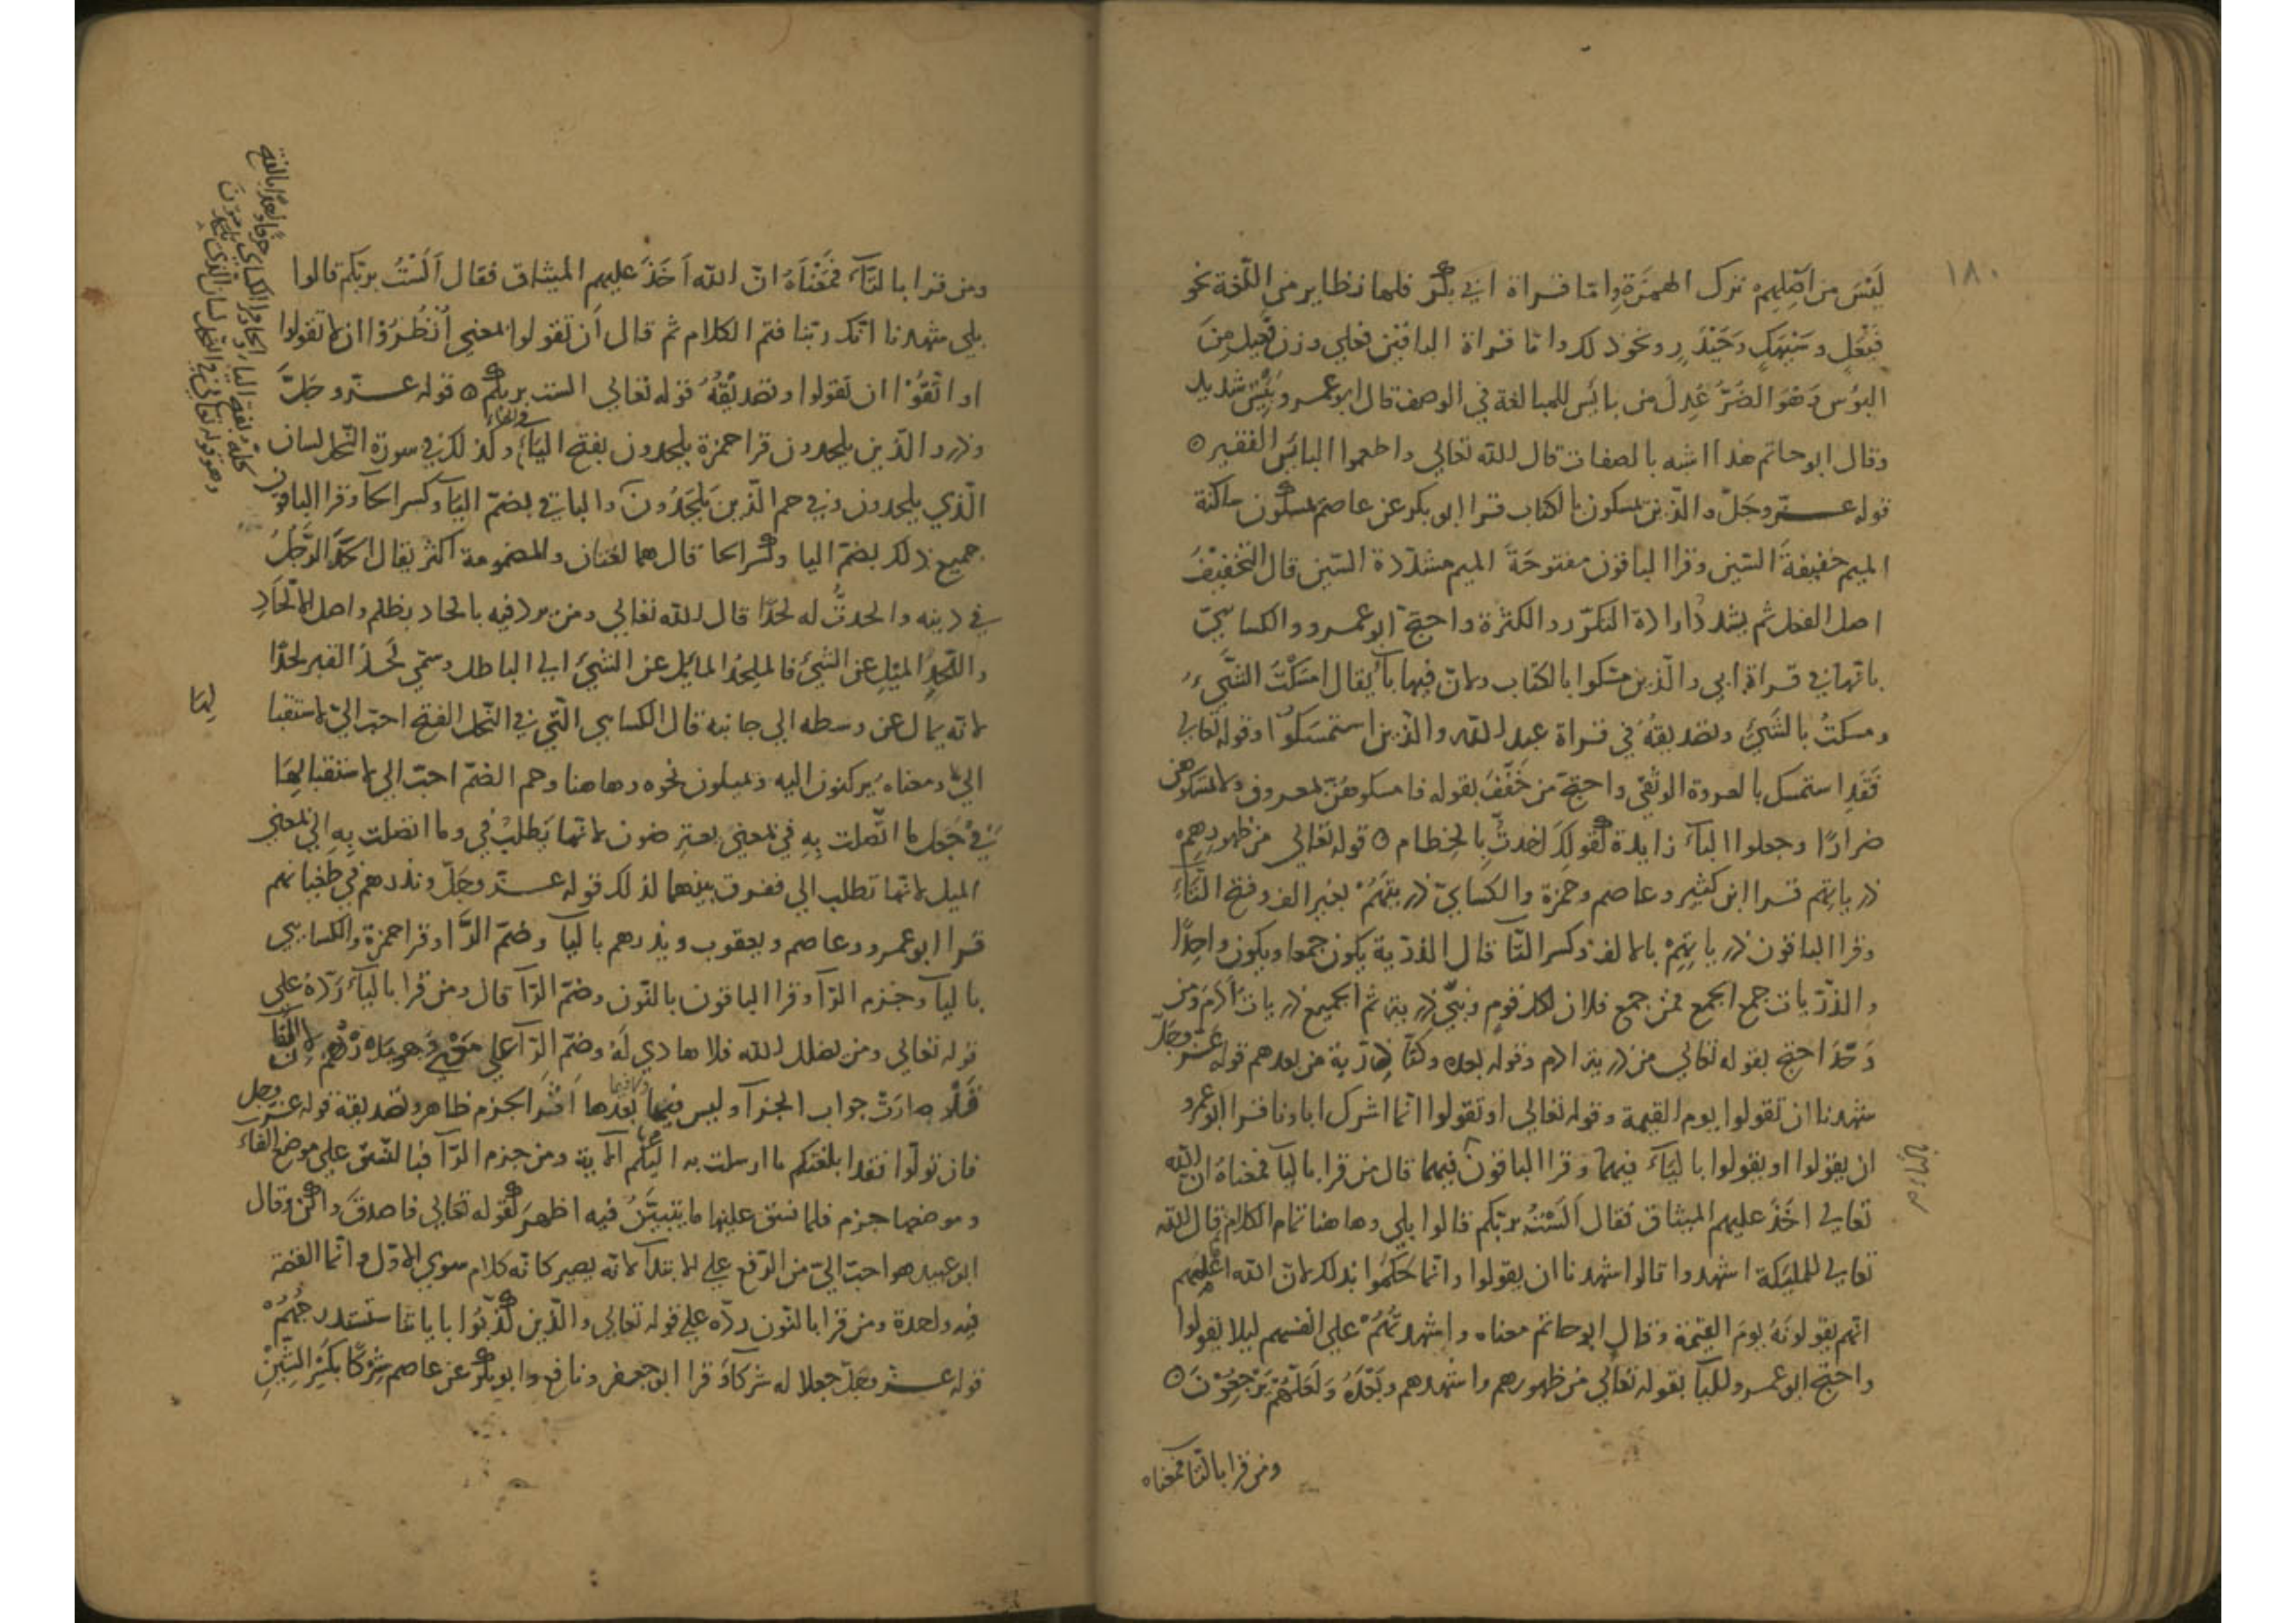 ١٨٠
لَيْسَ من اصلهم ترك الهمزة واما قراة ابي بكر فلها نظاير من اللغة نحو
فيعل وبيهك وحيدر ونحو ذلك واما قراة الباقين فعلي وزن فعيل من
البوس وهو الضر عُدِلَ من بائس للمبالغة في الوصف قال ابو عمرو بئيس شديد
وقال ابو حاتم هذا اشبه بالصفات قال الله تعالي واطعموا البائس الفقير ه
قوله عز وجل والذين يمسكون بالكتاب قرا ابو بكر عن عاصم يمسكون ساكنة
الميم خفيفة السين وقرا الباقون مفتوحة الميم مشددة السين قال التخفيف
اصل الفعل ثم يشدد ارادة التكرر والكثرة واحتج ابو عمرو والكسائي
بانها في قراة ابي والذين مسكوا بالكتاب ولان فيها باء يقال امسكت الشيء
ومسكت بالشيء وتصديقه في قراة عبد الله والذين استمسكوا وقوله تعالي
فقد استمسك بالعروة الوثقي واحتج من خفف بقوله فامسكوهن بمعروف ولا تمسكوهن
ضرارا وجعلوا الباء زايدة كقولك اخذت بالخطام ه قوله تعالي من ظهورهم
ذرياتهم قرا ابن كثير وعاصم وحمزة والكسائي ذريتهم بغير الف وفتح التاء
وقرا الباقون ذرياتهم بالالف وكسر التا قال الذرية يكون جمعا ويكون واحدا
والذريات جمع الجمع فمن جمع فلان لكل قوم وبني ذرية ثم الجميع ذريات ادم ومن
وَحّدَ احتج بقوله تعالي من ذرية ادم وقوله بعده وكنا ذرية من بعدهم قوله عز وجل
شهدنا ان تقولوا يوم القيمة وقوله تعالي او تقولوا انما اشرك اباونا قرا ابو عمرو
ان يقولوا او يقولوا بالياء فيهما وقرا الباقون فيهما قال من قرا باليا فمعناه ان الله
تعالي اخذ عليهم الميثاق فقال الست بربكم قالوا بلي وهاهنا تمام الكلام قال الله
تعالي للمليكة اشهدوا قالوا شهدنا ان يقولوا وانما حكموا بذلك لان الله اعلمهم
انهم يقولونه يوم القيمة وقال ابو حاتم معناه واشهدتهم علي انفسهم ليلا يقولوا
واحتج ابو عمرو لليا بقوله تعالي من ظهورهم واشهدهم وبَعْدَهُ ولعلهم يرجعون ه
ومن قرا بالتا فمعناه
ومن قرا بالتاء فمعناه ان الله اخذ عليهم الميثاق فقال الست بربكم قالوا
بلي شهدنا انك ربنا فتم الكلام ثم قال ان تقولوا بمعني انظروا ان لا تقولوا
او اتقوا ان تقولوا وتصديقه قوله تعالي الست بربكم ه قوله عز وجل
وذروا الذين يلحدون قرا حمزة يلحدون بفتح الياء وكذلك في سورة النحل لسان
الذي يلحدون وفي حم الذين يلحدون والباقي بضم اليا وكسر الحا وقرا الباقون
جميع ذلك بضم اليا وكسر الحا قال هما لغتان والمضمومة اكثر يقال الحد الرجل
في دينه والحدت له لحدا قال الله تعالي ومن يرد فيه بالحاد بظلم واصل الالحاد
واللحد الميل عن الشيء فالملحد المايل عن الشيء الي الباطل وسمي لحد القبر لحدا
لانه يمال عن وسطه الي جانبه قال الكسايي التي في النحل الفتح احب الي لاستقبا
الي ومعناه يركنون اليه ويميلون نحوه وهاهنا وحم الضم احب الي لاستقبالها
في جعل ما اتصلت به في بمعني يعترضون لانها تطلب في وما اتصلت به الي بمعني
الميل لانها تطلب الي ففرق بينهما لذلك قوله عز وجل ونذرهم في طغيانهم
قرا ابو عمرو وعاصم ويعقوب ويذرهم باليا وضم الرا وقرا حمزة والكسايي
باليا وجزم الرا وقرا الباقون بالنون وضم الرا قال ومن قرا بالياء رده علي
قوله تعالي ومن يضلل الله فلا هادي له وضم الرا علي
صارت جواب الجزآ وليس فيما بعدها اثر الجزم ظاهر وتصديقه قوله عز وجل
فان تولوا فقد ابلغتكم ما ارسلت به اليكم الاية ومن جزم الرا فبالنسق علي موضع الفاء
وموضعها جزم فلما نسق عليها ما يتبين فيه اظهر كقوله تعالي فاصدق واكن وقال
ابو عبيد هو احب الي من الرفع علي الابتدا لانه يصير كانه كلام سوي الاول وانما القصة
فيه واحدة ومن قرا بالنون رده علي قوله تعالي والذين كذبوا باياتنا سنستدرجهم
قوله عز وجل جعلا له شركاء قرا ابو جعفر ونافع وابو بكر عن عاصم شركا بكسر الشين